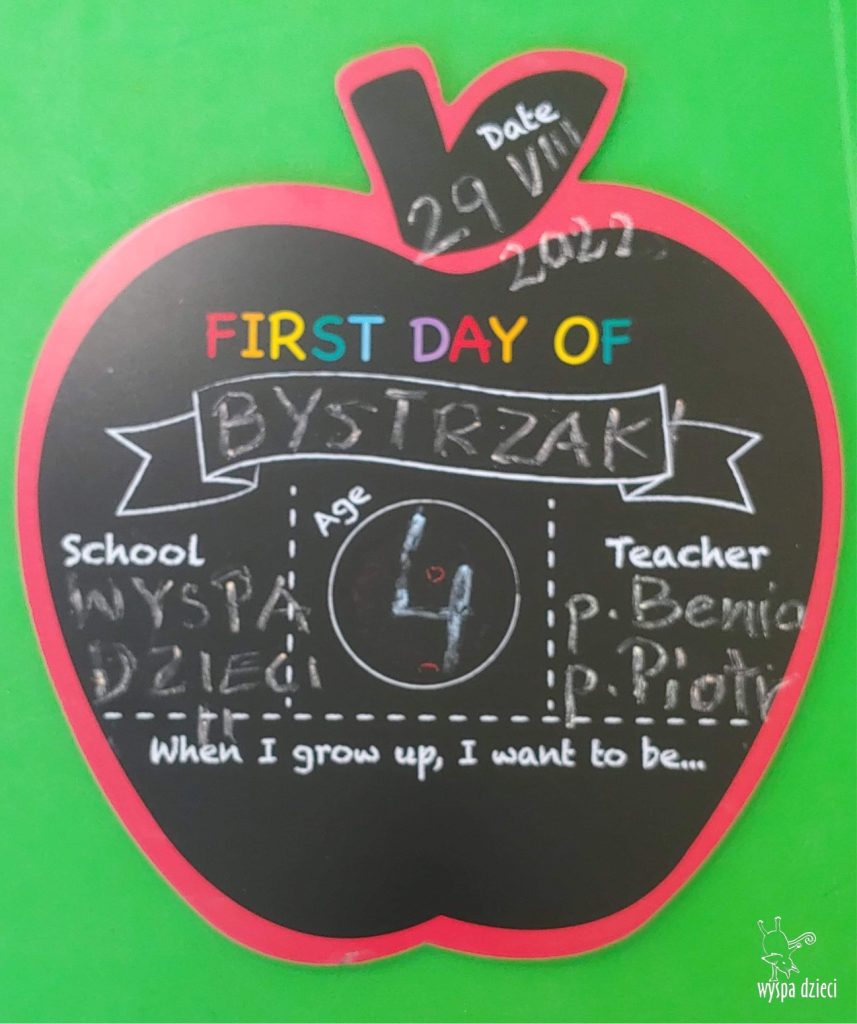 Date
29 VIII
2022
FIRST DAY OF
BYSTRZAKI
Age
4
School
WYSPA
DZIECI
II
Teacher
p. Benia
p. Piotr
When I grow up, I want to be...
wyspa dzieci